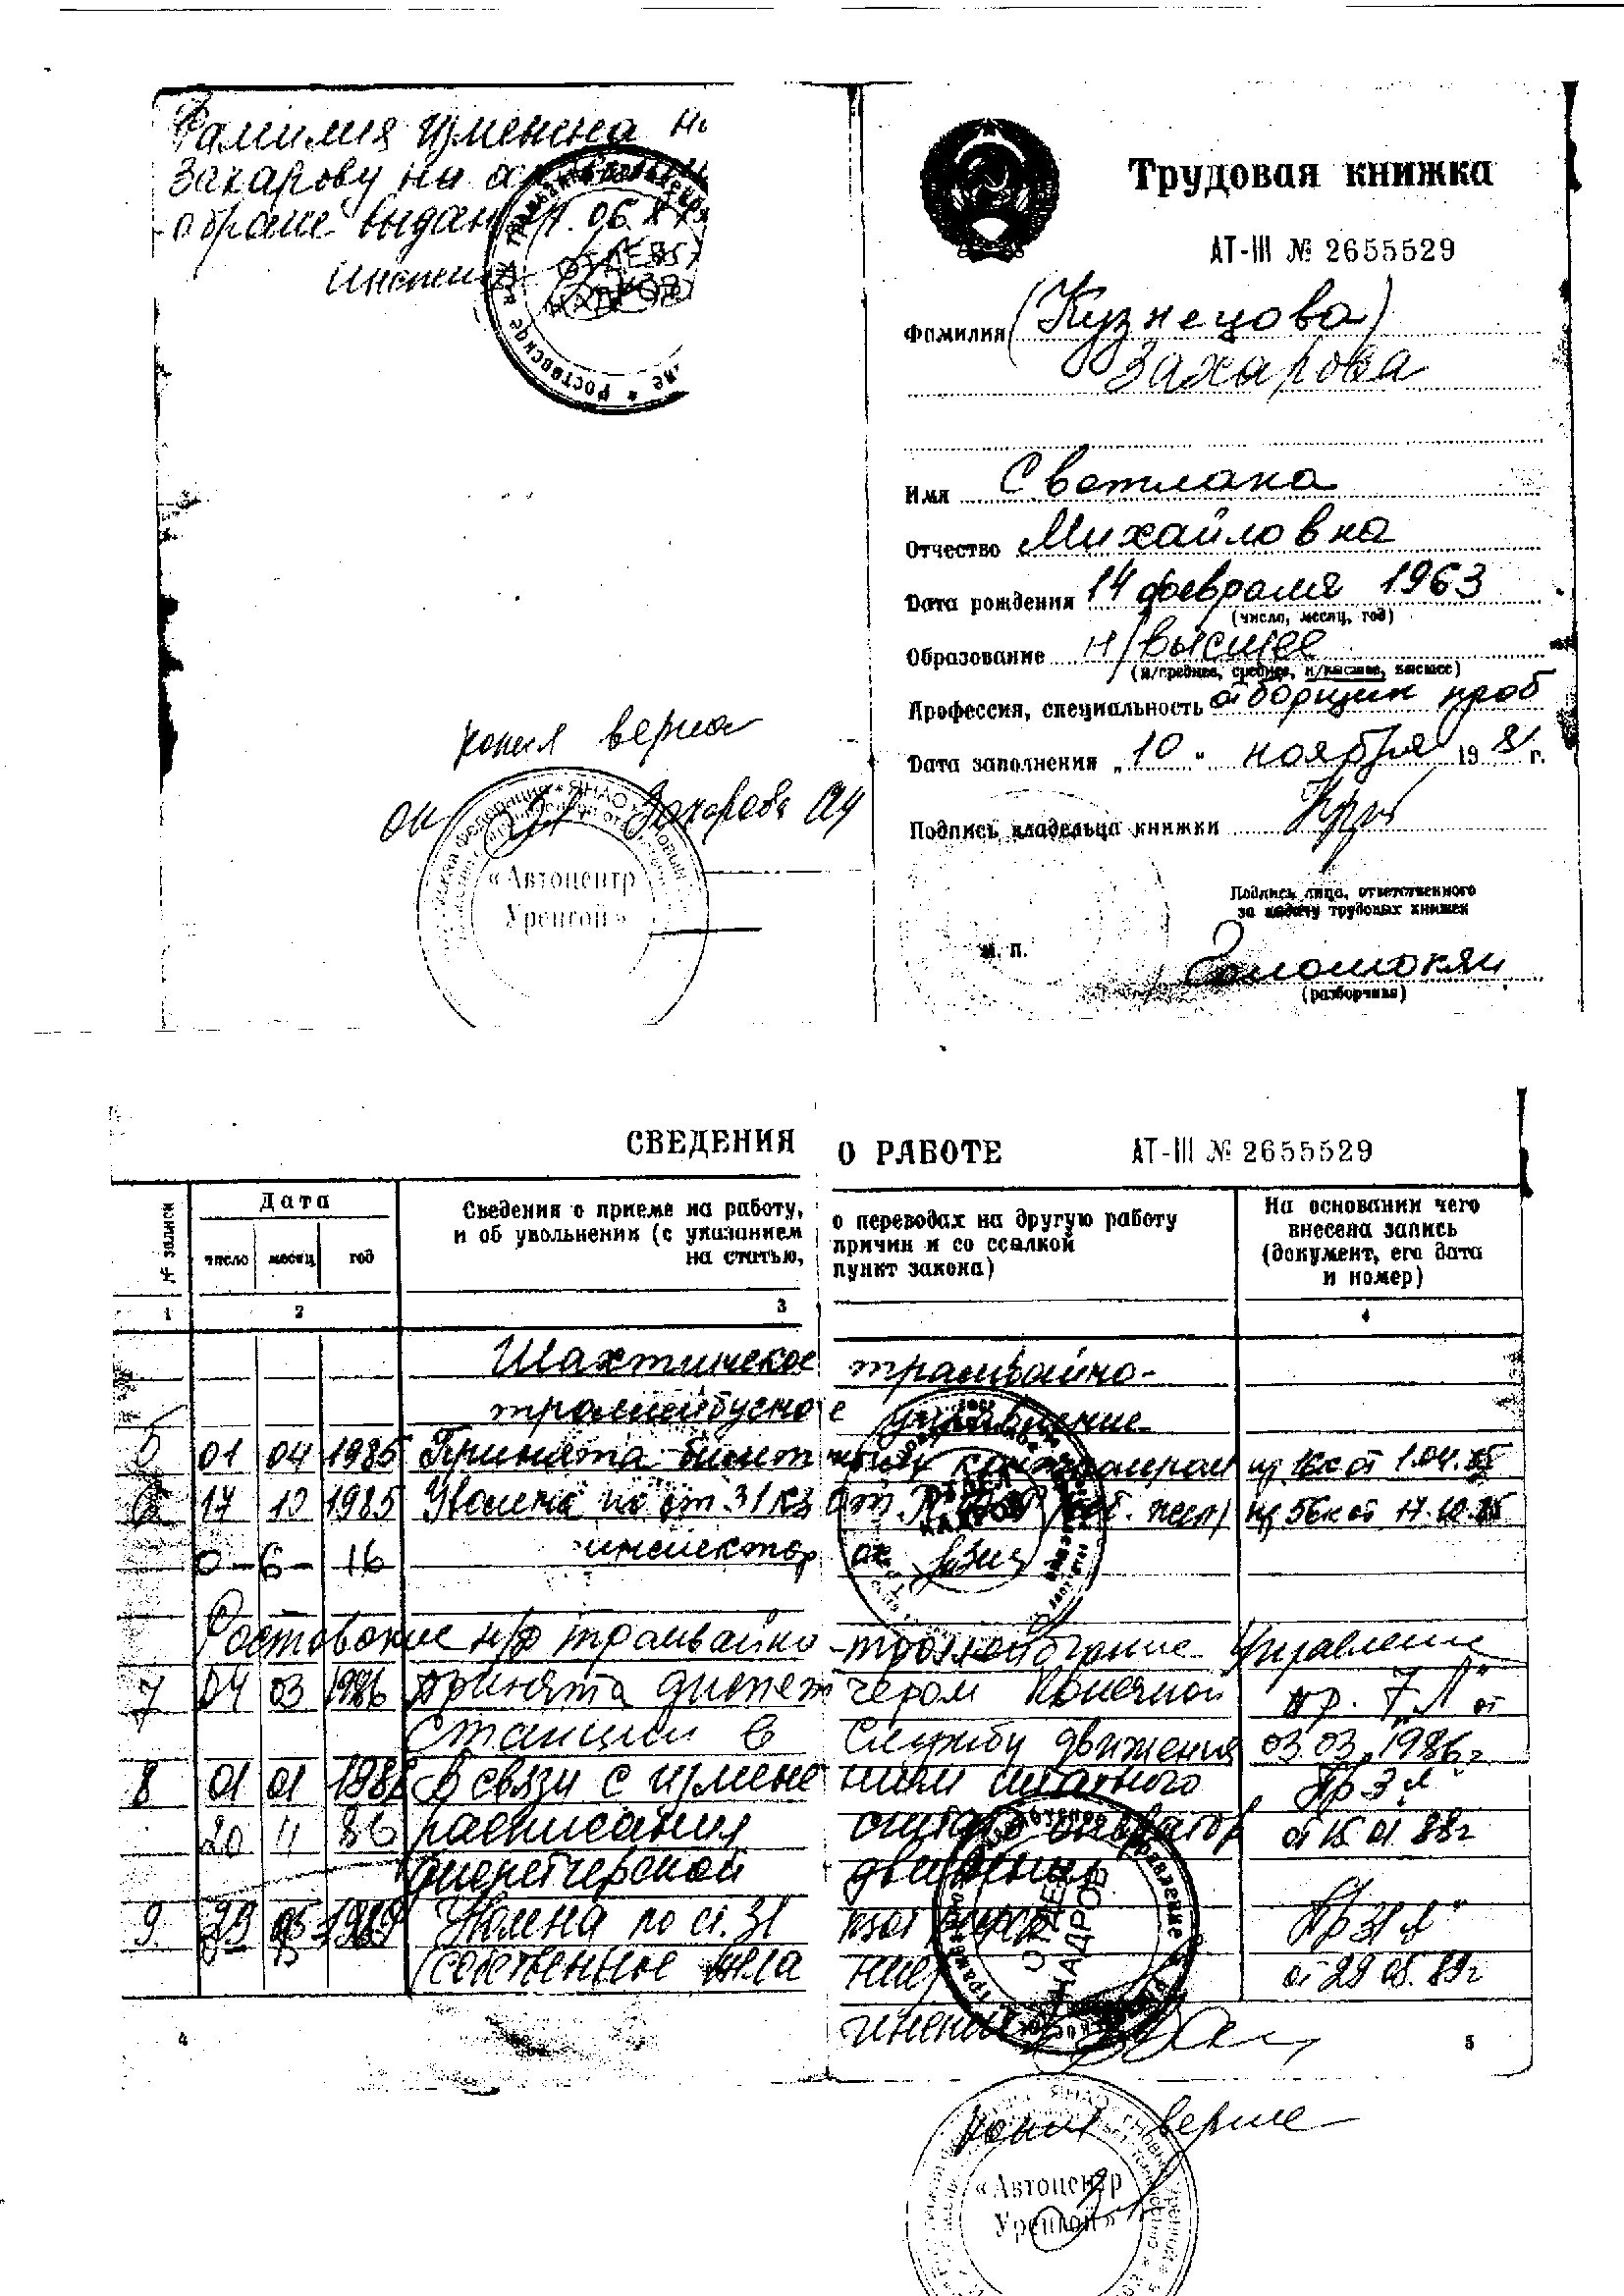 Фамилия изменена на
Захарову на
о браке выдан 06
Инспек
ОТДЕЛ
КАДРОВ
Ростовское
копия верна
ок Захарова
«Автоцентр
Уренгой»
Трудовая книжка
АТ-III № 2655529
Фамилия (Кузнецова)
Захарова
Имя Светлана
Отчество Михайловна
Дата рождения 14 февраля 1963
(число, месяц, год)
Образование н/высшее
(н/среднее, среднее, н/высшее, высшее)
Профессия, специальность отборщик проб
Дата заполнения „10“ ноября 1981 г.
Подпись владельца книжки
Подпись лица, ответственного
за выдачу трудовых книжек
М. П.
(разборчиво)
СВЕДЕНИЯ О РАБОТЕ АТ-III № 2655529
№ записи
Дата
число месяц год
Сведения о приеме на работу, о переводах на другую работу
и об увольнении (с указанием причин и со ссылкой
на статью, пункт закона)
На основании чего
внесена запись
(документ, его дата
и номер)
1 2 3 4
Шахтинское трамвайно-
троллейбусное управление
5 01 04 1985 Принята контролером пр 16к от 1.04.85
6 17 10 1985 Уволена по ст. 31 КЗоТ пр 56к от 17.10.85
0-6-16 инспектор ок
Ростовское н/Д трамвайно-троллейбусное Управление
7 04 03 1986 принята диспетчером Конечной пр. 7 „Л“ от
станции в Службу движения 03.03.1986г
8 01 01 1988 В связи с изменением штатного Пр 3 „Л“
20 11 86 расписания считать оператор от 15.01.88г
диспетчерской движения
9. 29 05 1989 Уволена по ст. 31 КЗоТ РСФСР Пр 31 „Л“
(собственное желание) от 29.05.89г
ОТДЕЛ КАДРОВ
4 5
Копия верна
«Автоцентр
Уренгой»